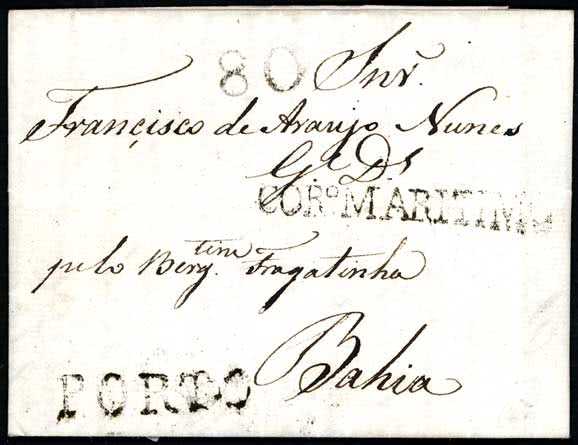 80 Snr.
Francisco de Araujo Nunes
Gde Ds
CORº MARITIMO
pelo Bergtim. Fragatinha
Bahia
PORTO